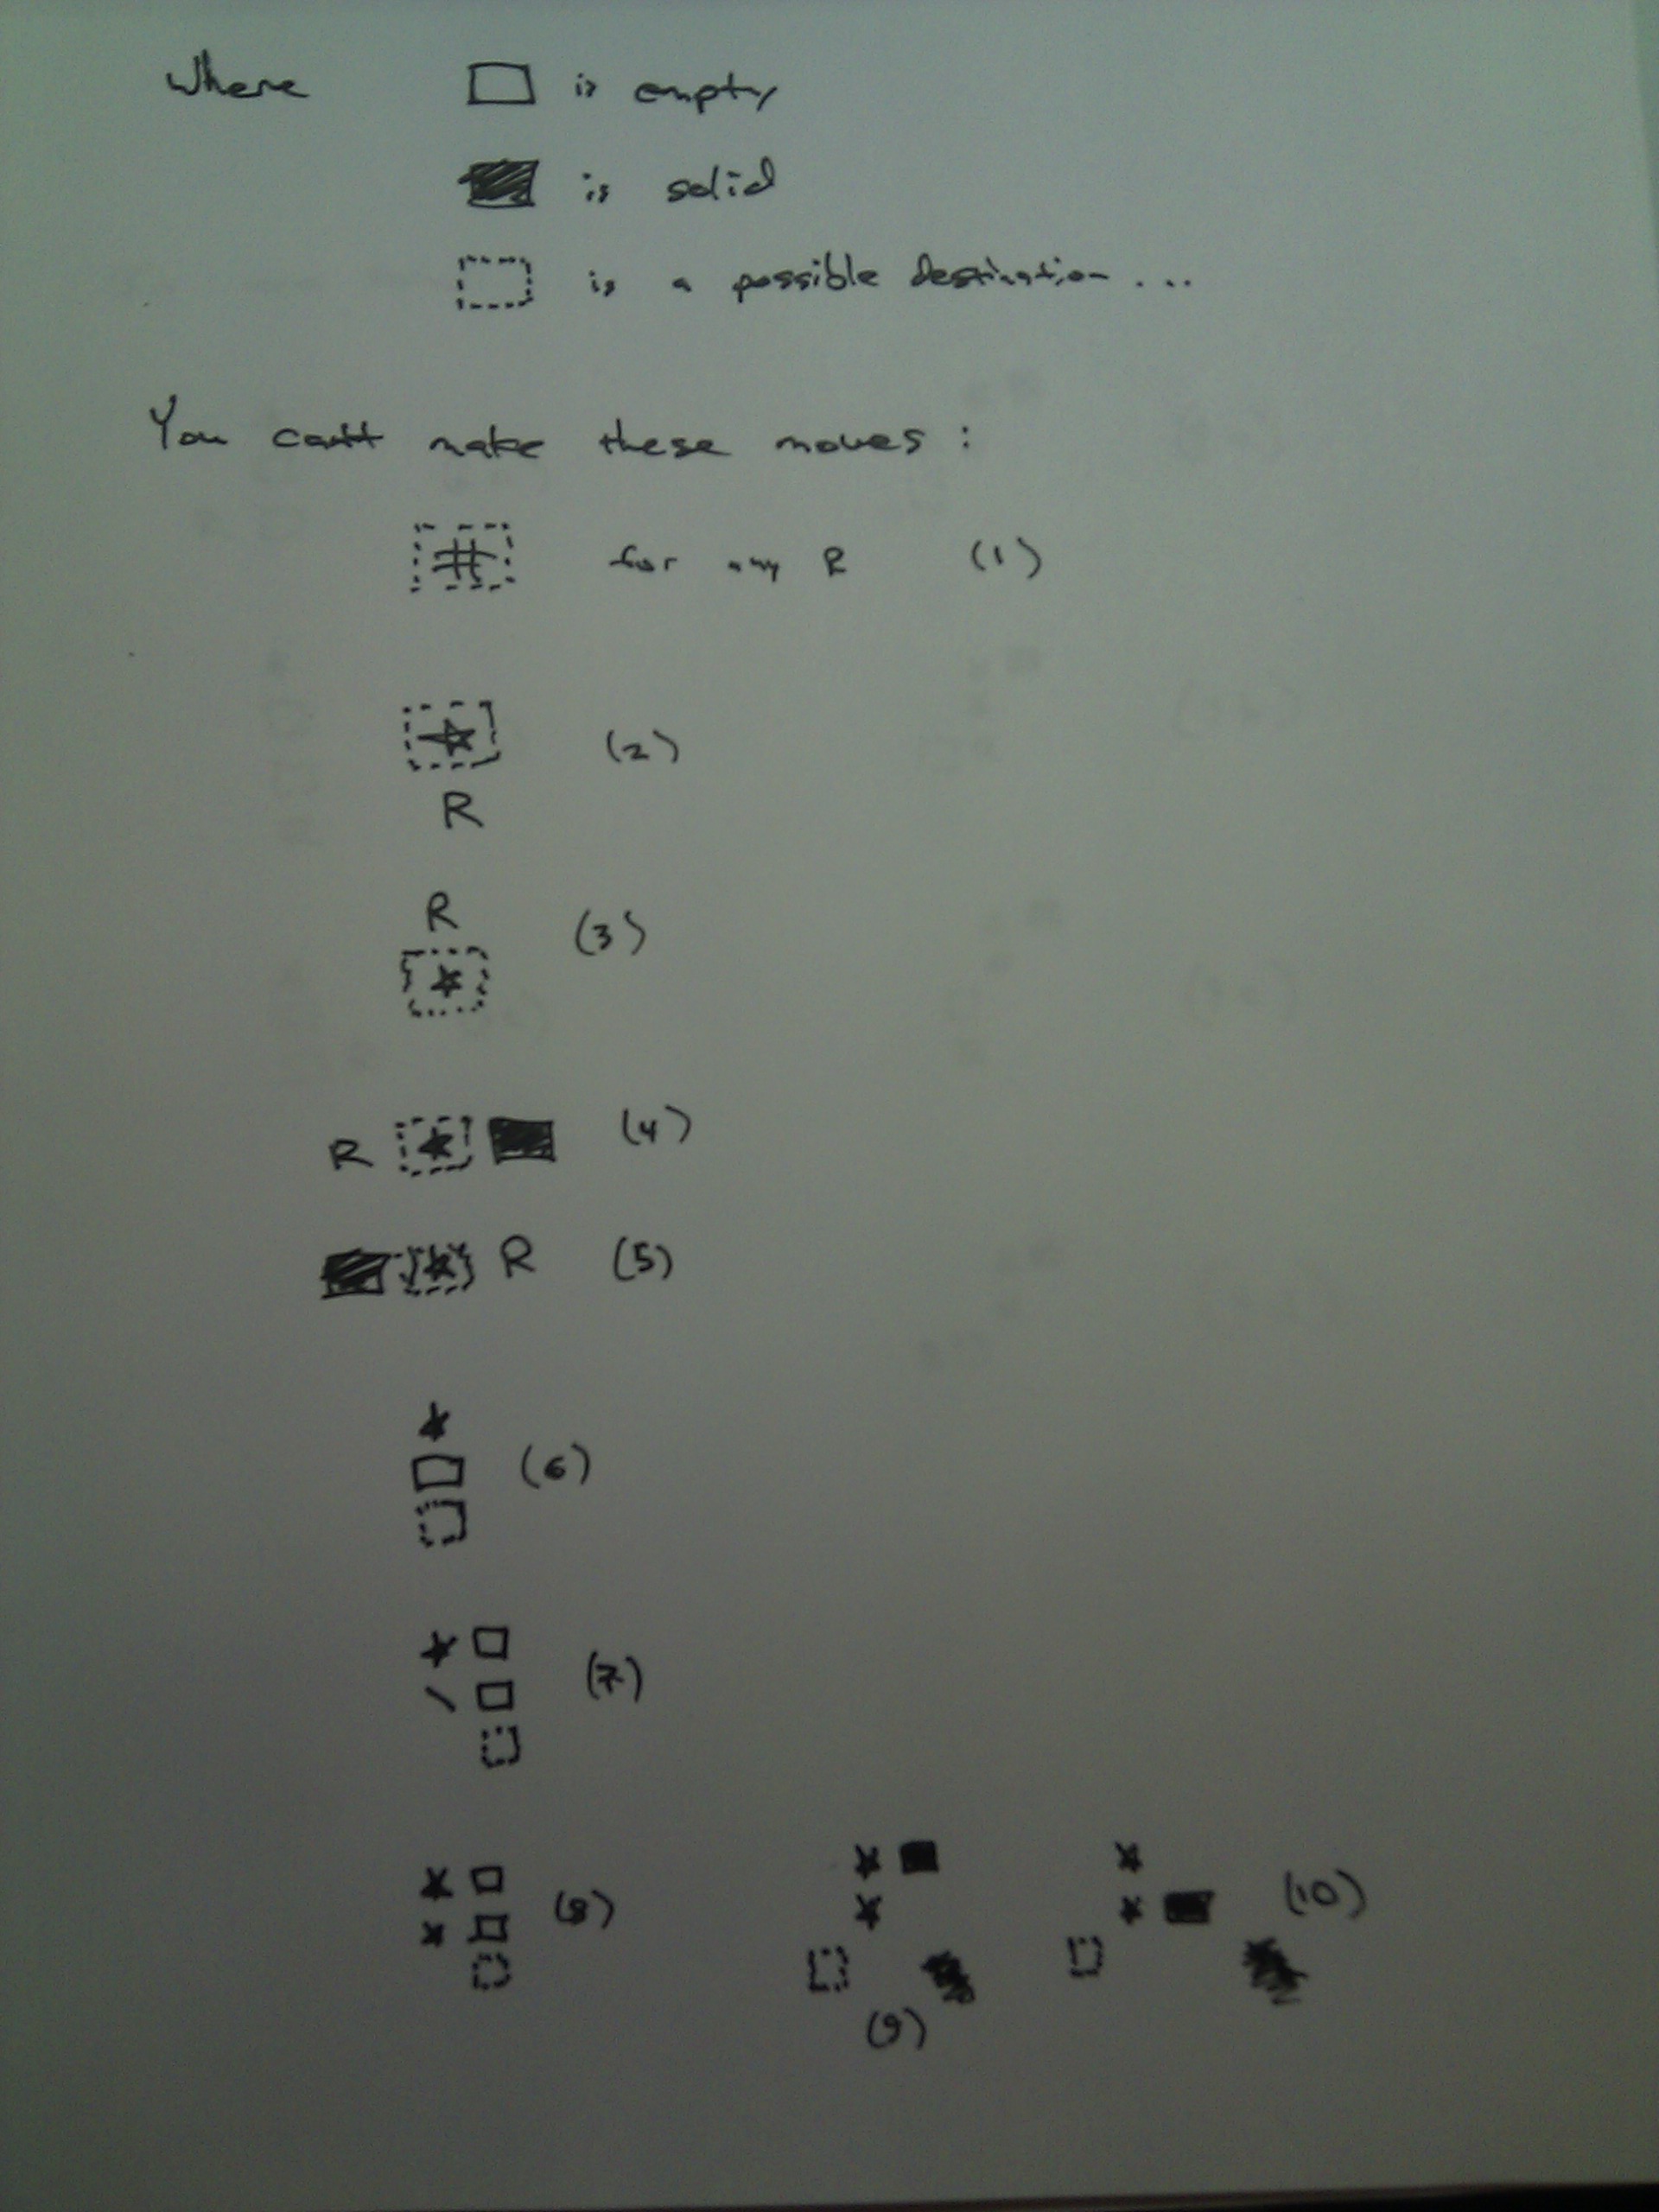 Where is empty
is solid
is a possible destination ...
You can't make these moves :
# for any R (1)
(2)
R
R
(3)
R (4)
R (5)
(6)
(7)
(8)
(9)
(10)